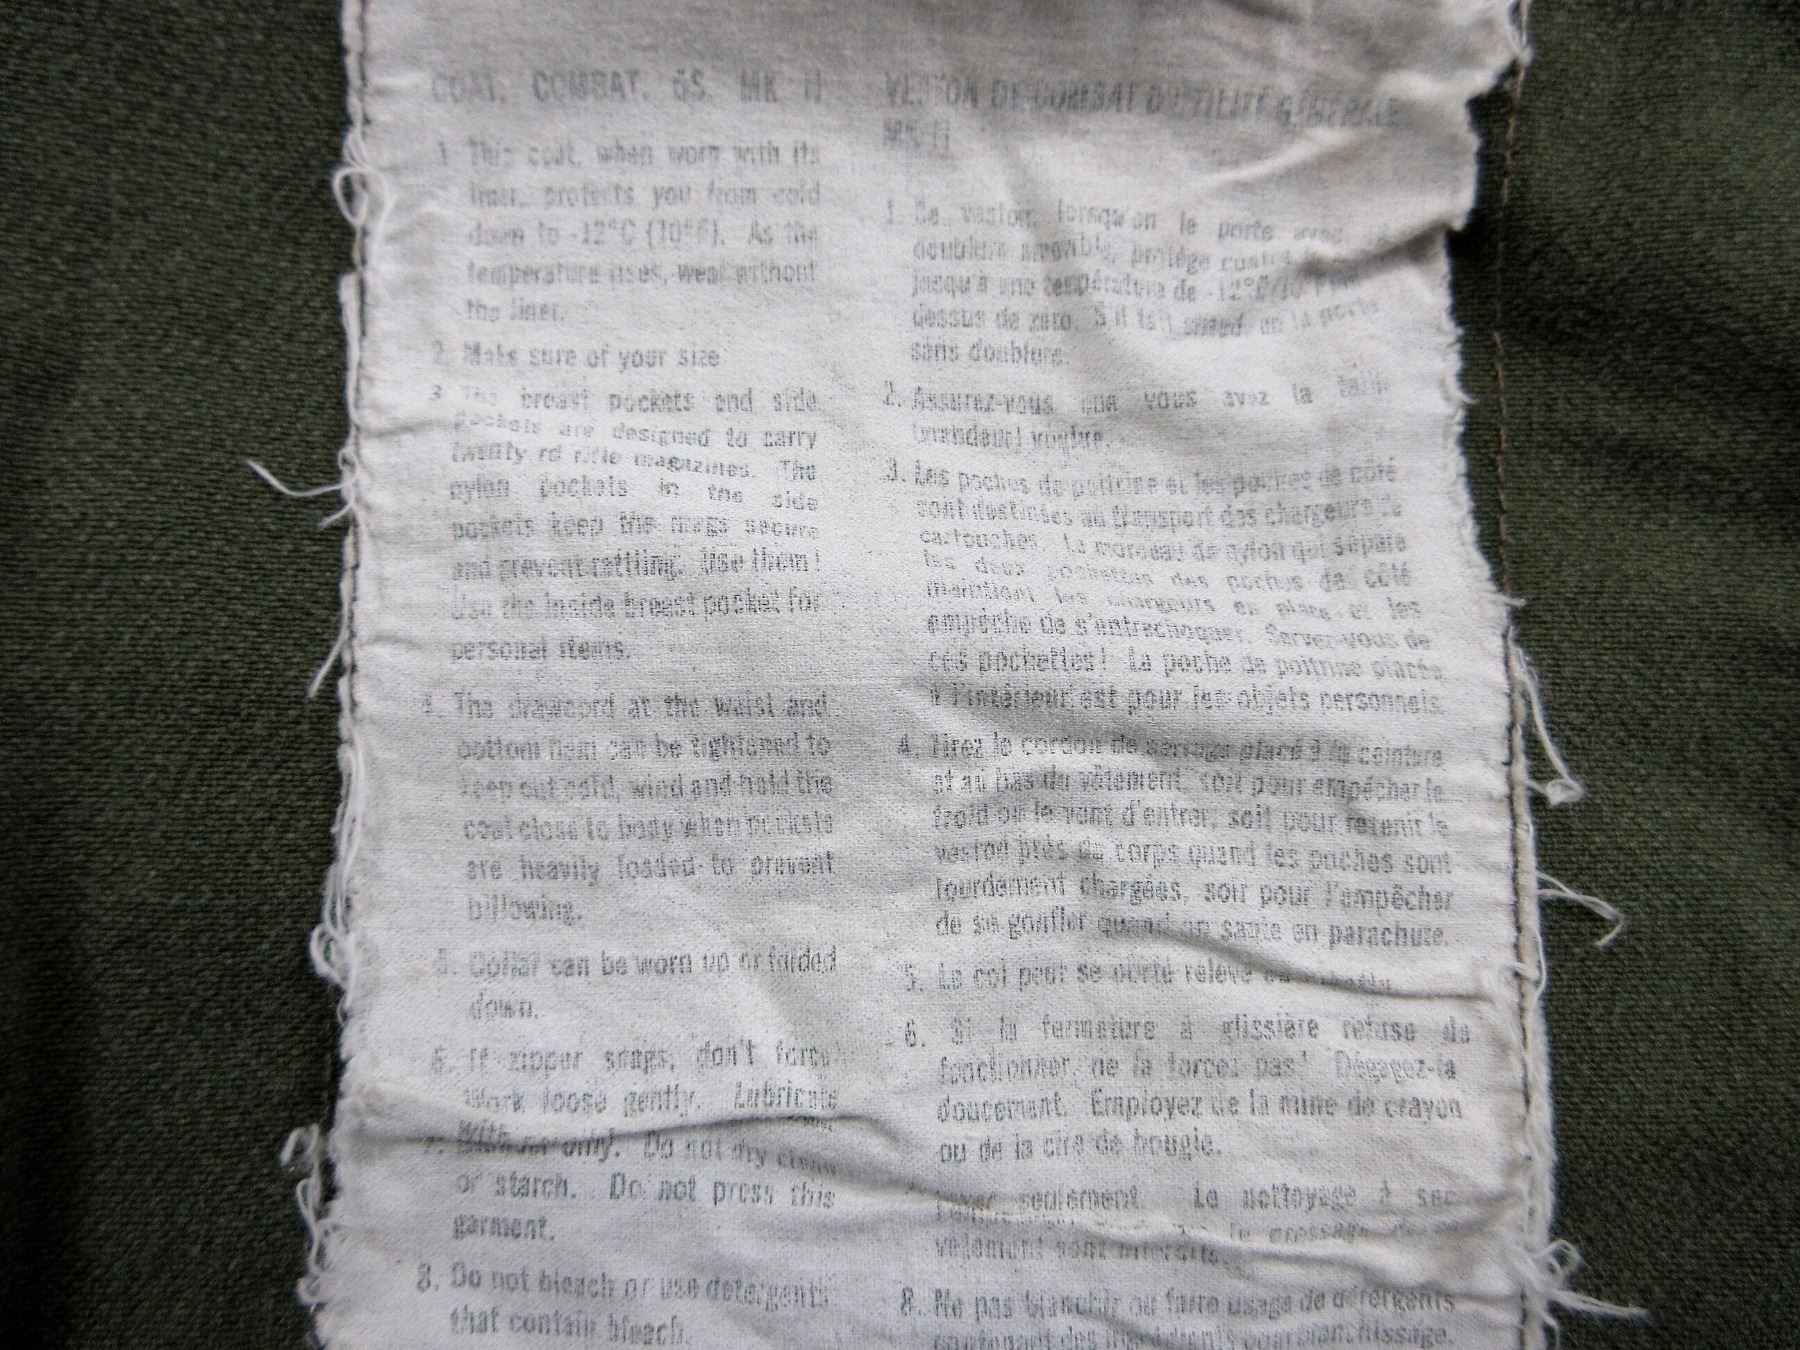 COAT, COMBAT, GS, MK II
1. This coat, when worn with its
liner, protects you from cold
down to -12°C (10°F). As the
temperature rises, wear without
the liner.
2. Make sure of your size
3. The breast pockets and side
pockets are designed to carry
twenty rd rifle magazines. The
nylon pockets in the side
pockets keep the mags secure
and prevent rattling. Use them!
Use the inside breast pocket for
personal items.
4. The drawcord at the waist and
bottom hem can be tightened to
keep out cold, wind and hold the
coat close to body when pockets
are heavily loaded to prevent
billowing.
5. Collar can be worn up or folded
down.
6. If zipper snags, don't force!
Work loose gently. Lubricate
with
7. only! Do not dry clean
or starch. Do not press this
garment.
8. Do not bleach or use detergents
that contain bleach.
VESTON DE COMBAT D'UTILITÉ GÉNÉRALE
MK II
1. Ce veston, lorsqu'on le porte avec
doublure amovible, protège contre
jusqu'à une température de -12°C
dessus de zéro. S'il fait chaud, on le porte
sans doublure.
2. Assurez-vous que vous avez la taille
(grandeur) voulue.
3. Les poches de poitrine et les poches de côté
sont destinées au transport des chargeurs de
cartouches. Le morceau de nylon qui sépare
les deux pochettes des poches de côté
maintient les chargeurs en place et les
empêche de s'entrechoquer. Servez-vous de
ces pochettes! La poche de poitrine placée
à l'intérieur est pour les objets personnels.
4. Tirez le cordon de serrage placé à la ceinture
et au bas du vêtement, soit pour empêcher le
froid ou le vent d'entrer, soit pour retenir le
veston près du corps quand les poches sont
lourdement chargées, soit pour l'empêcher
de se gonfler quand on saute en parachute.
5. Le col peut se porter relevé ou
6. Si la fermeture à glissière refuse de
fonctionner, ne la forcez pas! Dégagez-la
doucement. Employez de la mine de crayon
ou de la cire de bougie.
7. Laver seulement. Le nettoyage à sec
le pressage
vêtement sont interdits.
8. Ne pas blanchir ou faire usage de détergents
contenant des ingrédients pour blanchissage.